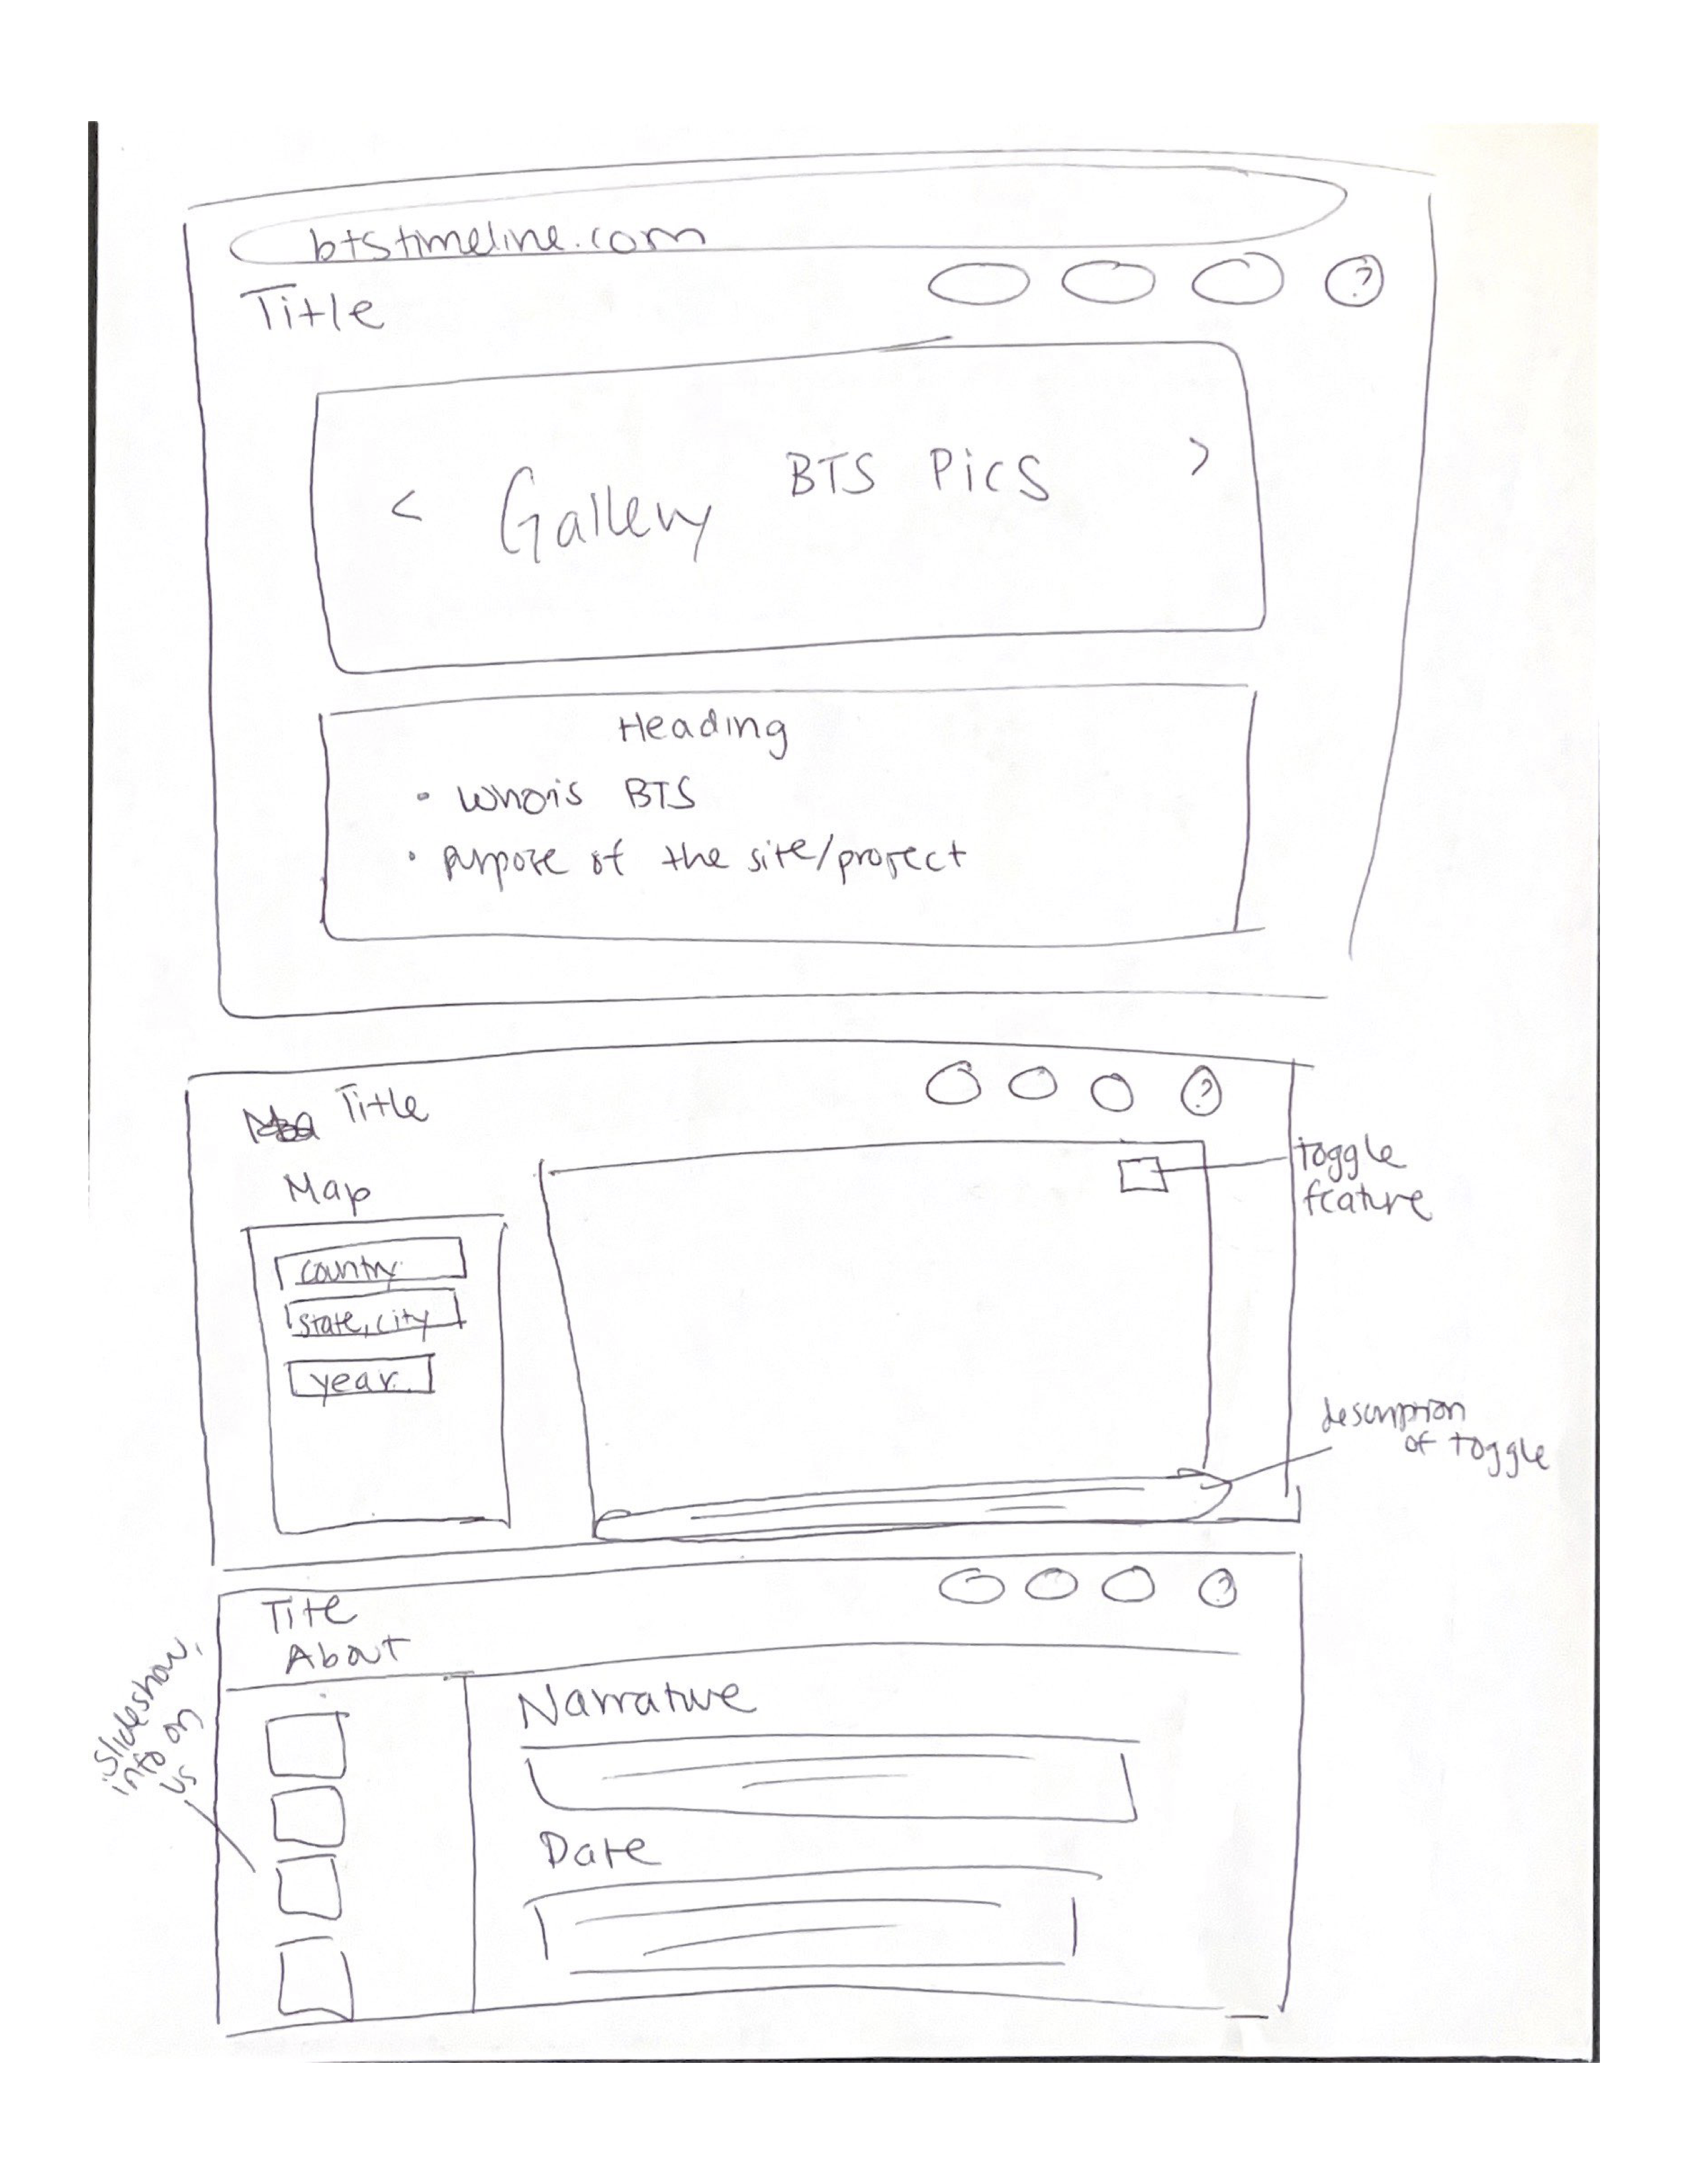 btstimeline.com
Title
?
< Gallery BTS Pics >
Heading
• whois BTS
• purpose of the site/project
Title
?
Map
toggle
feature
country
state, city
year
description
of toggle
Title
?
About
slideshow,
info on
us
Narrative
Date